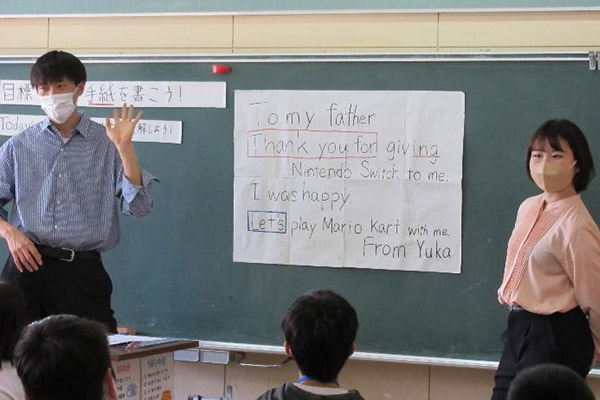 目標
手紙を書こう!
Today
解しよう!
To my father
Thank you for giving
Nintendo Switch to me.
I was happy.
Let's play Mario Kart with me.
From Yuka